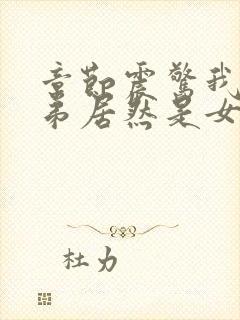 章節震驚我
弟居然是女
杜力